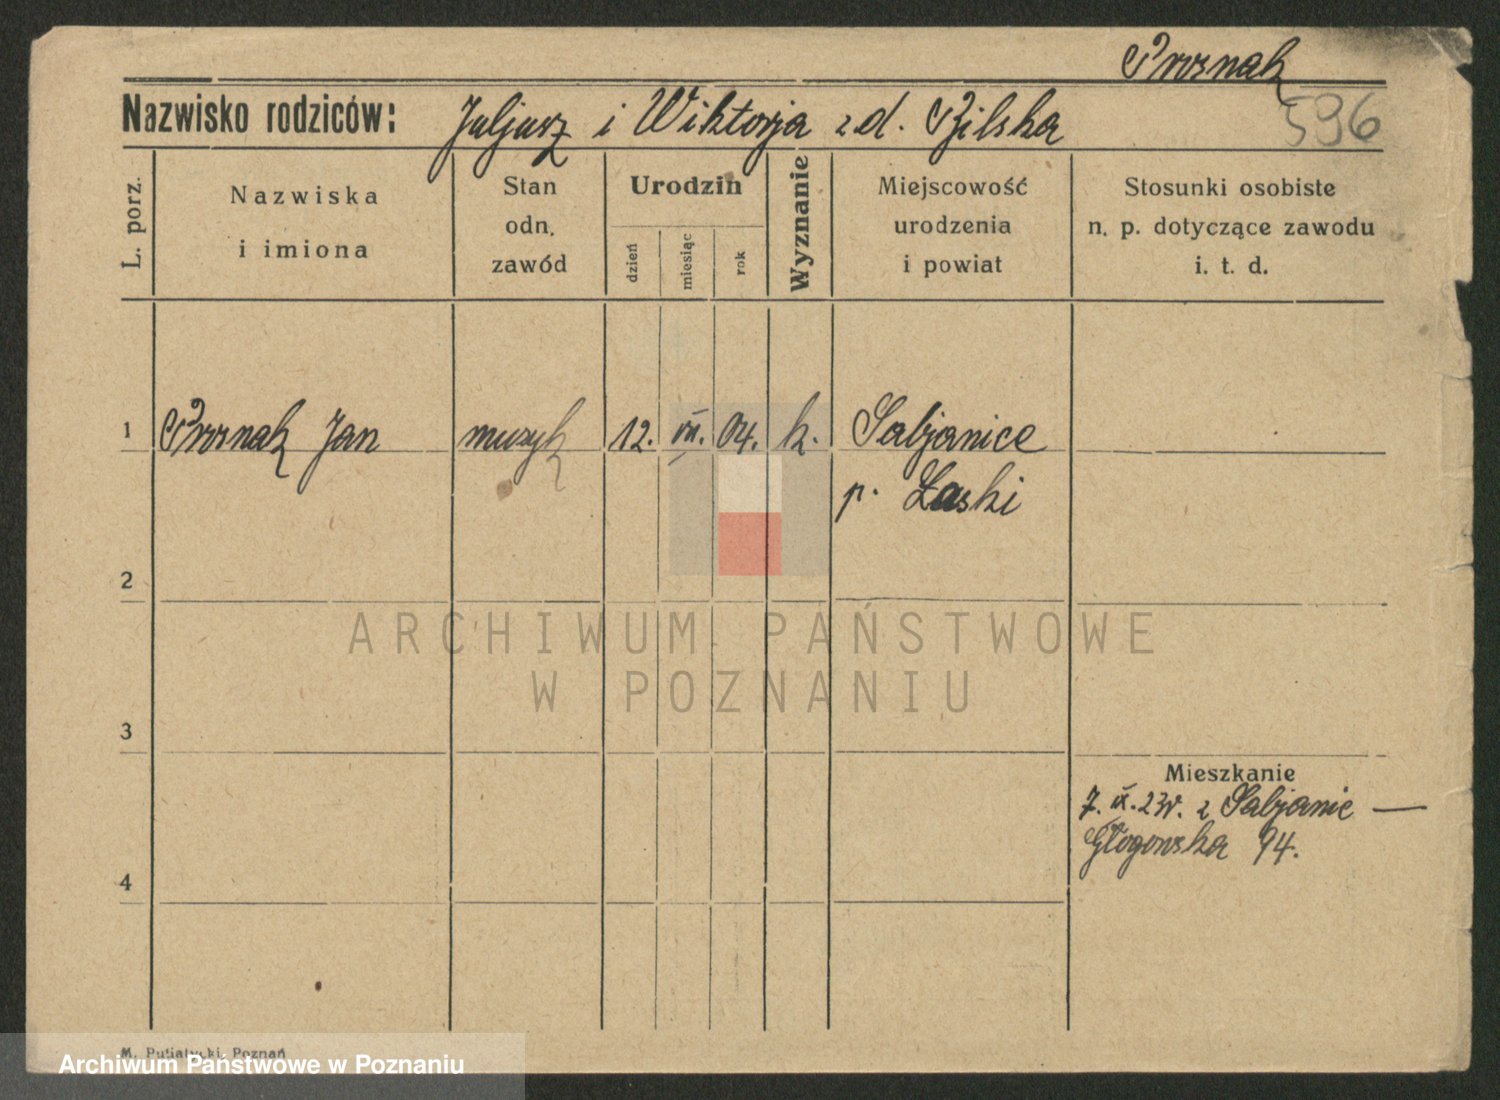 Prosnak
Nazwisko rodziców: Juljusz i Wiktorja z d. Bilska
596
L. porz.
Nazwiska
i imiona
Stan
odn.
zawód
Urodzin
dzień
miesiąc
rok
Wyznanie
Miejscowość
urodzenia
i powiat
Stosunki osobiste
n. p. dotyczące zawodu
i. t. d.
1 Prosnak Jan muzyk 12. VII. 04. k. Pabjanice
p. Łaski
2
3
4
Mieszkanie
7. IX. 23r. z Pabjanic —
Głogowska 94.
ARCHIWUM PAŃSTWOWE
W POZNANIU
M. Putiatycki, Poznań
Archiwum Państwowe w Poznaniu